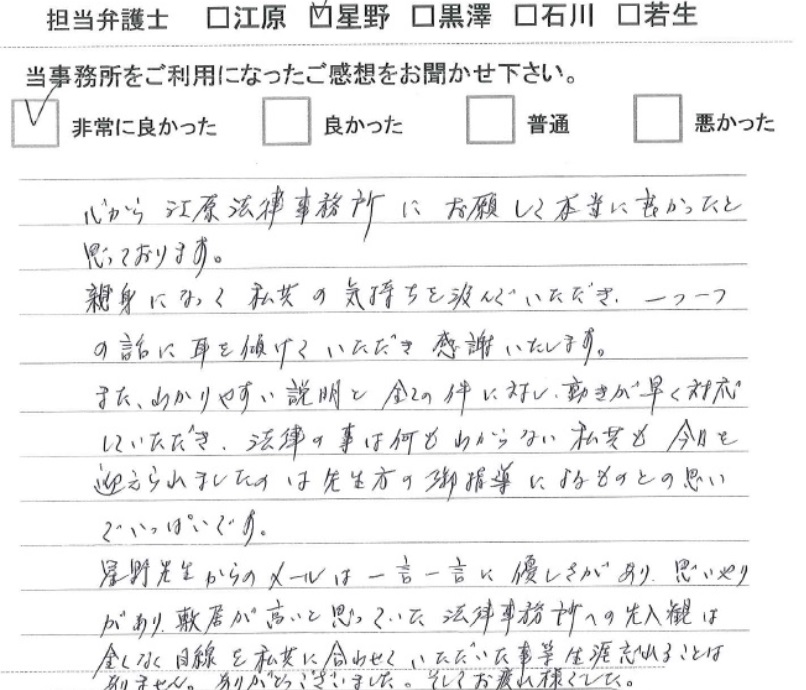 担当弁護士 □江原 ☑星野 □黒澤 □石川 □若生
当事務所をご利用になったご感想をお聞かせ下さい。
☑ 非常に良かった □ 良かった □ 普通 □ 悪かった
心から江原法律事務所にお願して本当に良かったと
思っております。
親身になって私共の気持ちを汲んでいただき、一つ一つ
の話に耳を傾けていただき感謝いたします。
また、わかりやすい説明と全ての件に対し、動きが早く対応
していただき、法律の事は何もわからない私共も今日を
迎えられましたのは先生方の御指導によるものとの思い
でいっぱいです。
星野先生からのメールは一言一言に優しさがあり、思いやり
があり、敷居が高いと思っていた法律事務所への先入観は
全くなく目線を私共に合わせていただいた事等生涯忘れることは
ありません。ありがとうございました。そしてお疲れ様でした。